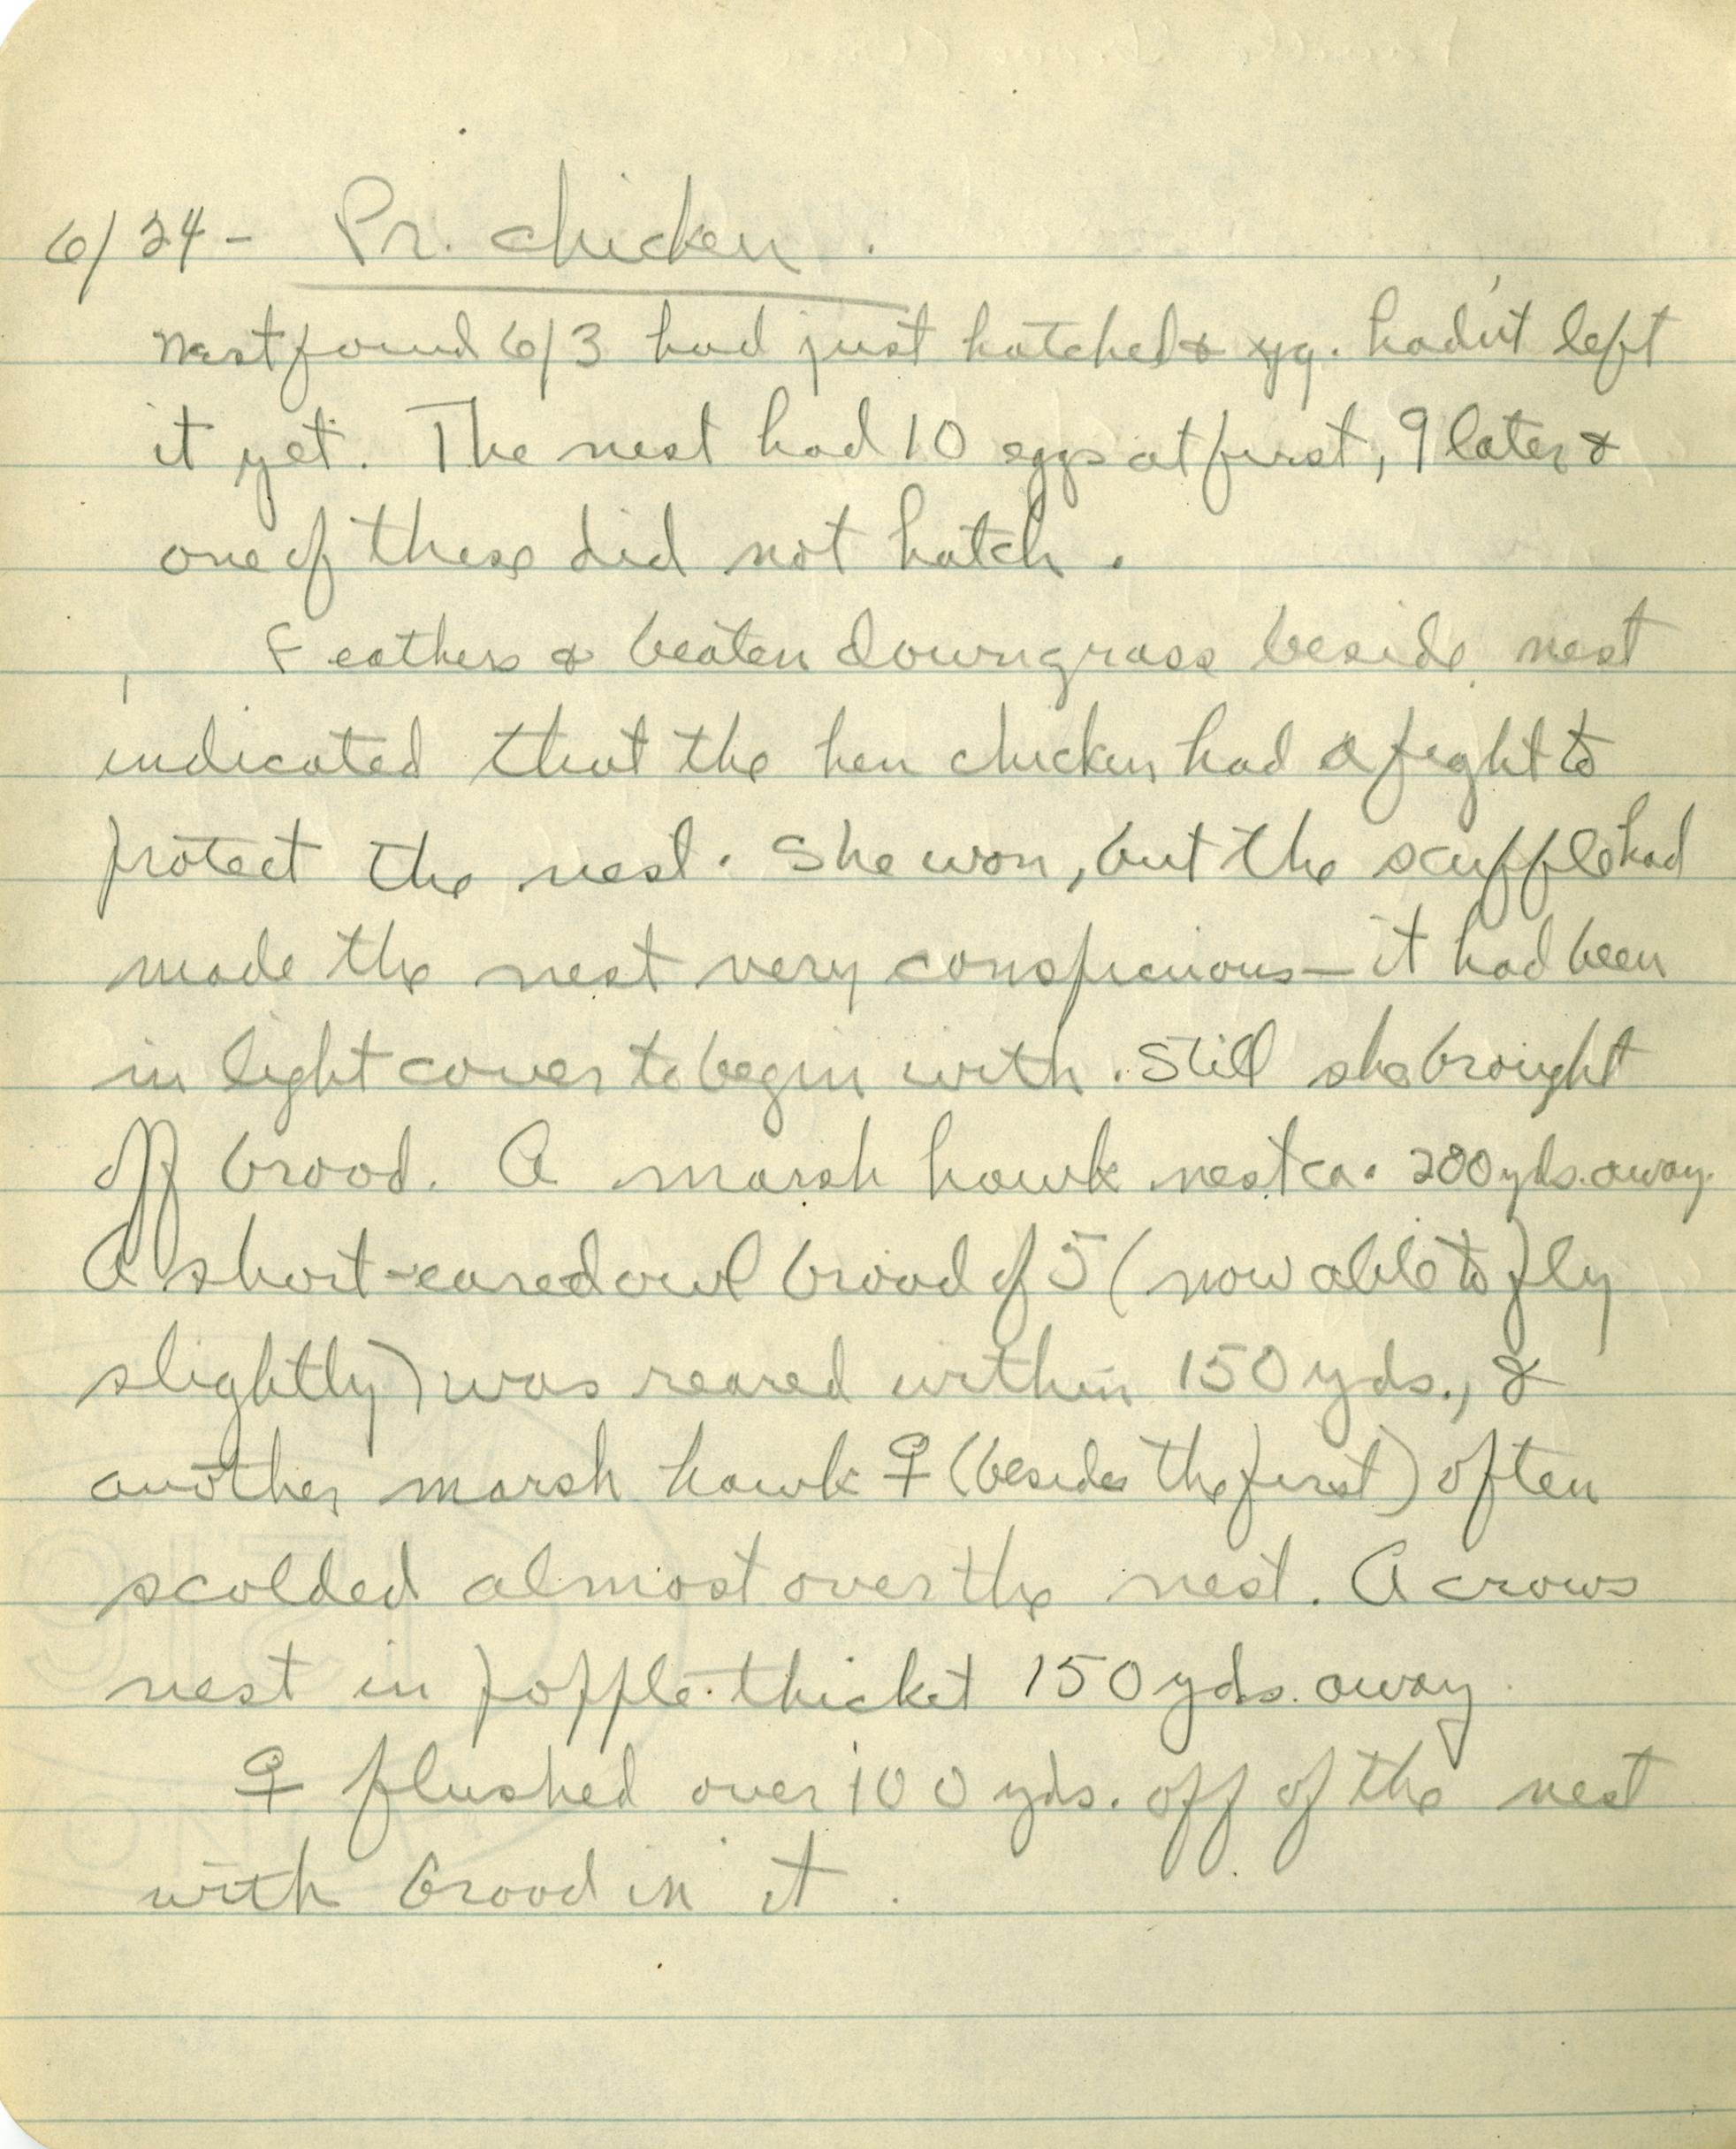 6/24 - Pr. chicken.
nest found 6/3 had just hatched & yg. hadn't left
it yet. The nest had 10 eggs at first, 9 later &
one of these did not hatch.
Feathers & beaten down grass beside nest
indicated that the hen chicken had a fight to
protect the nest. She won, but the scuffle had
made the nest very conspicuous - it had been
in light cover to begin with. Still she brought
off brood. A marsh hawk nest ca. 200 yds. away.
A short-eared owl brood of 5 (now able to fly
slightly) was reared within 150 yds., &
another marsh hawk ♀ (besides the first) often
scolded almost over the nest. A crows
nest in popple thicket 150 yds. away
♀ flushed over 100 yds. off of the nest
with brood in it.